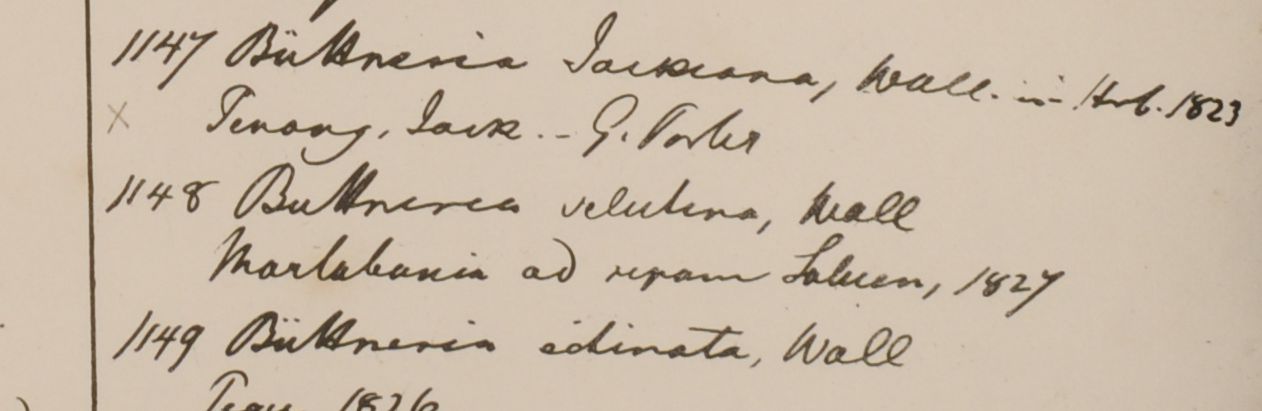 1147 Büttneria Jackiana, Wall. in Herb. 1823
× Penang, Jack. - G. Porter
1148 Buttneria velutina, Wall
Martabania ad ripam Saluen, 1827
1149 Büttneria echinata, Wall
1826